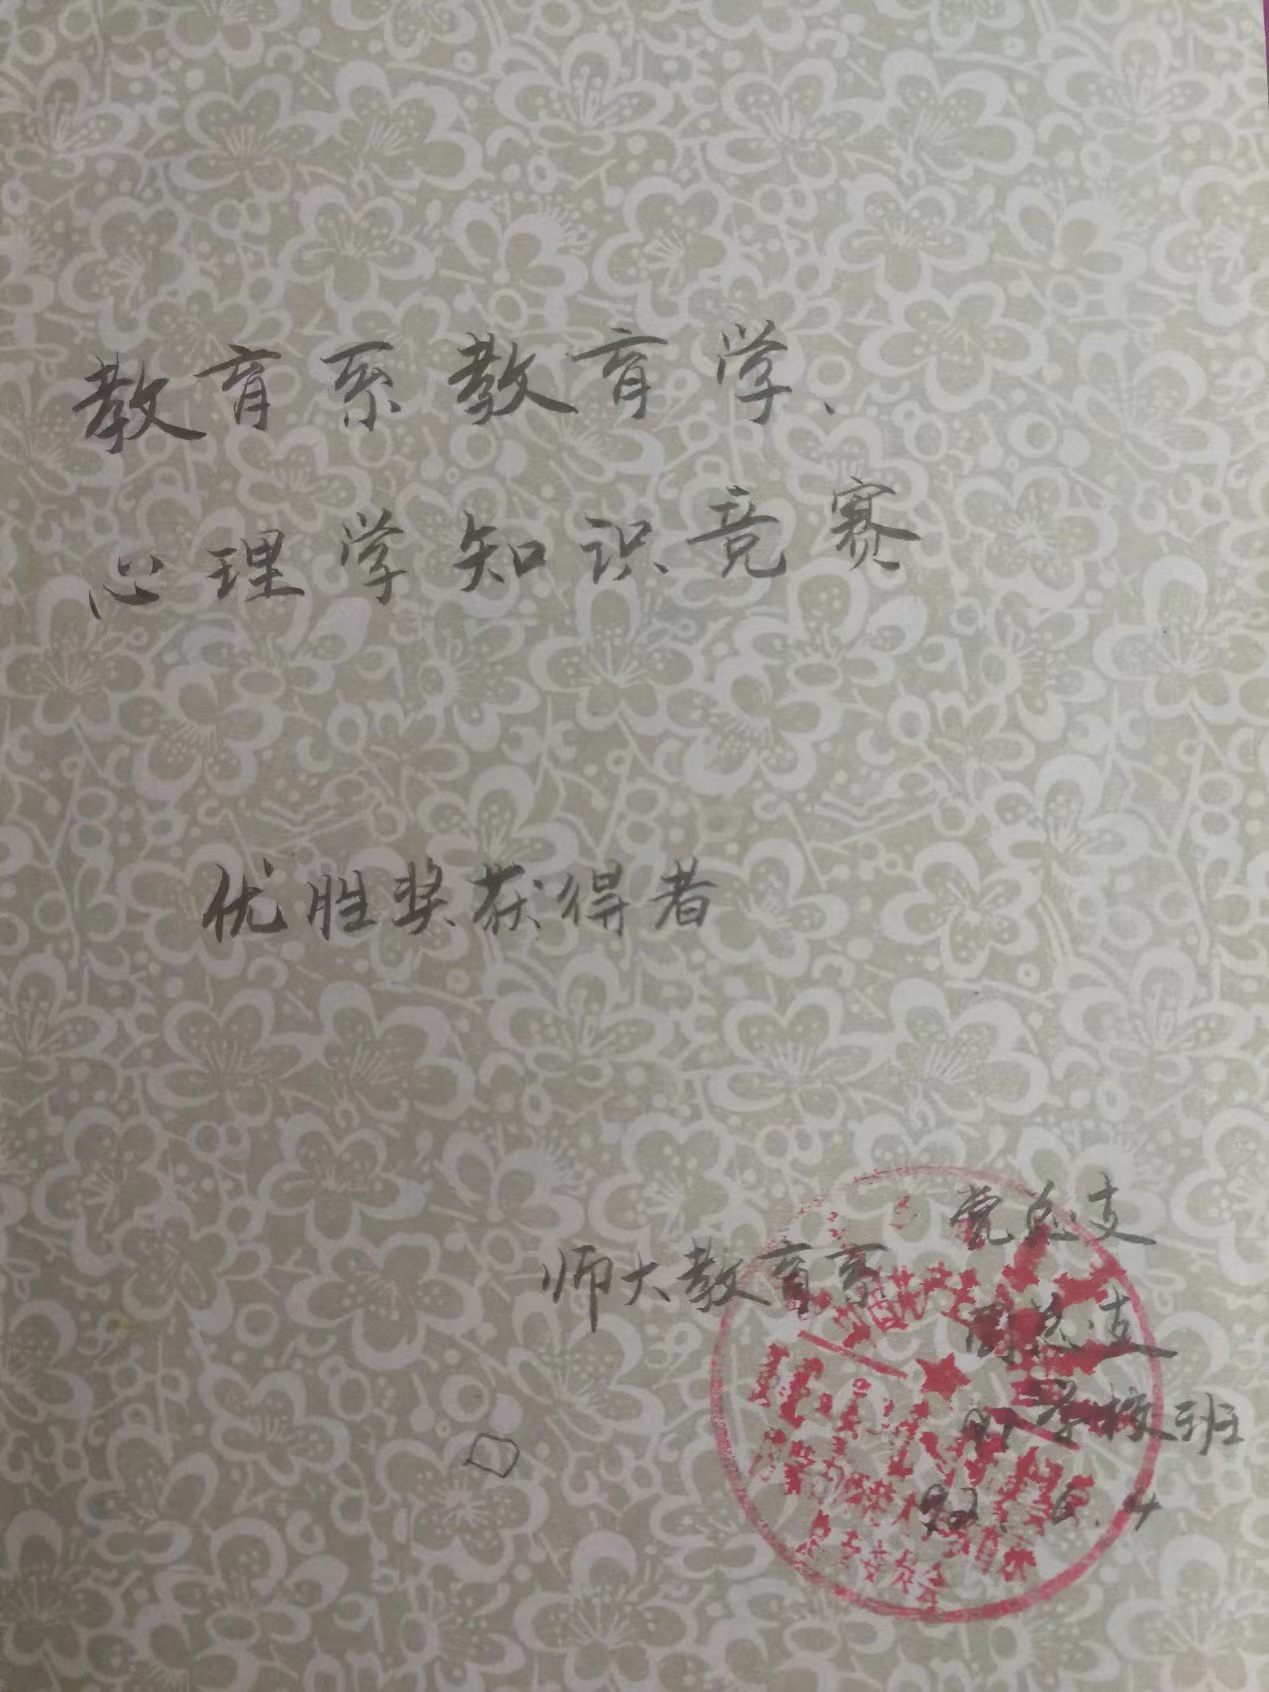 教育系教育学、
心理学知识竞赛
优胜奖获得者
党总支
师大教育系
团总支
学校班
92.6.4